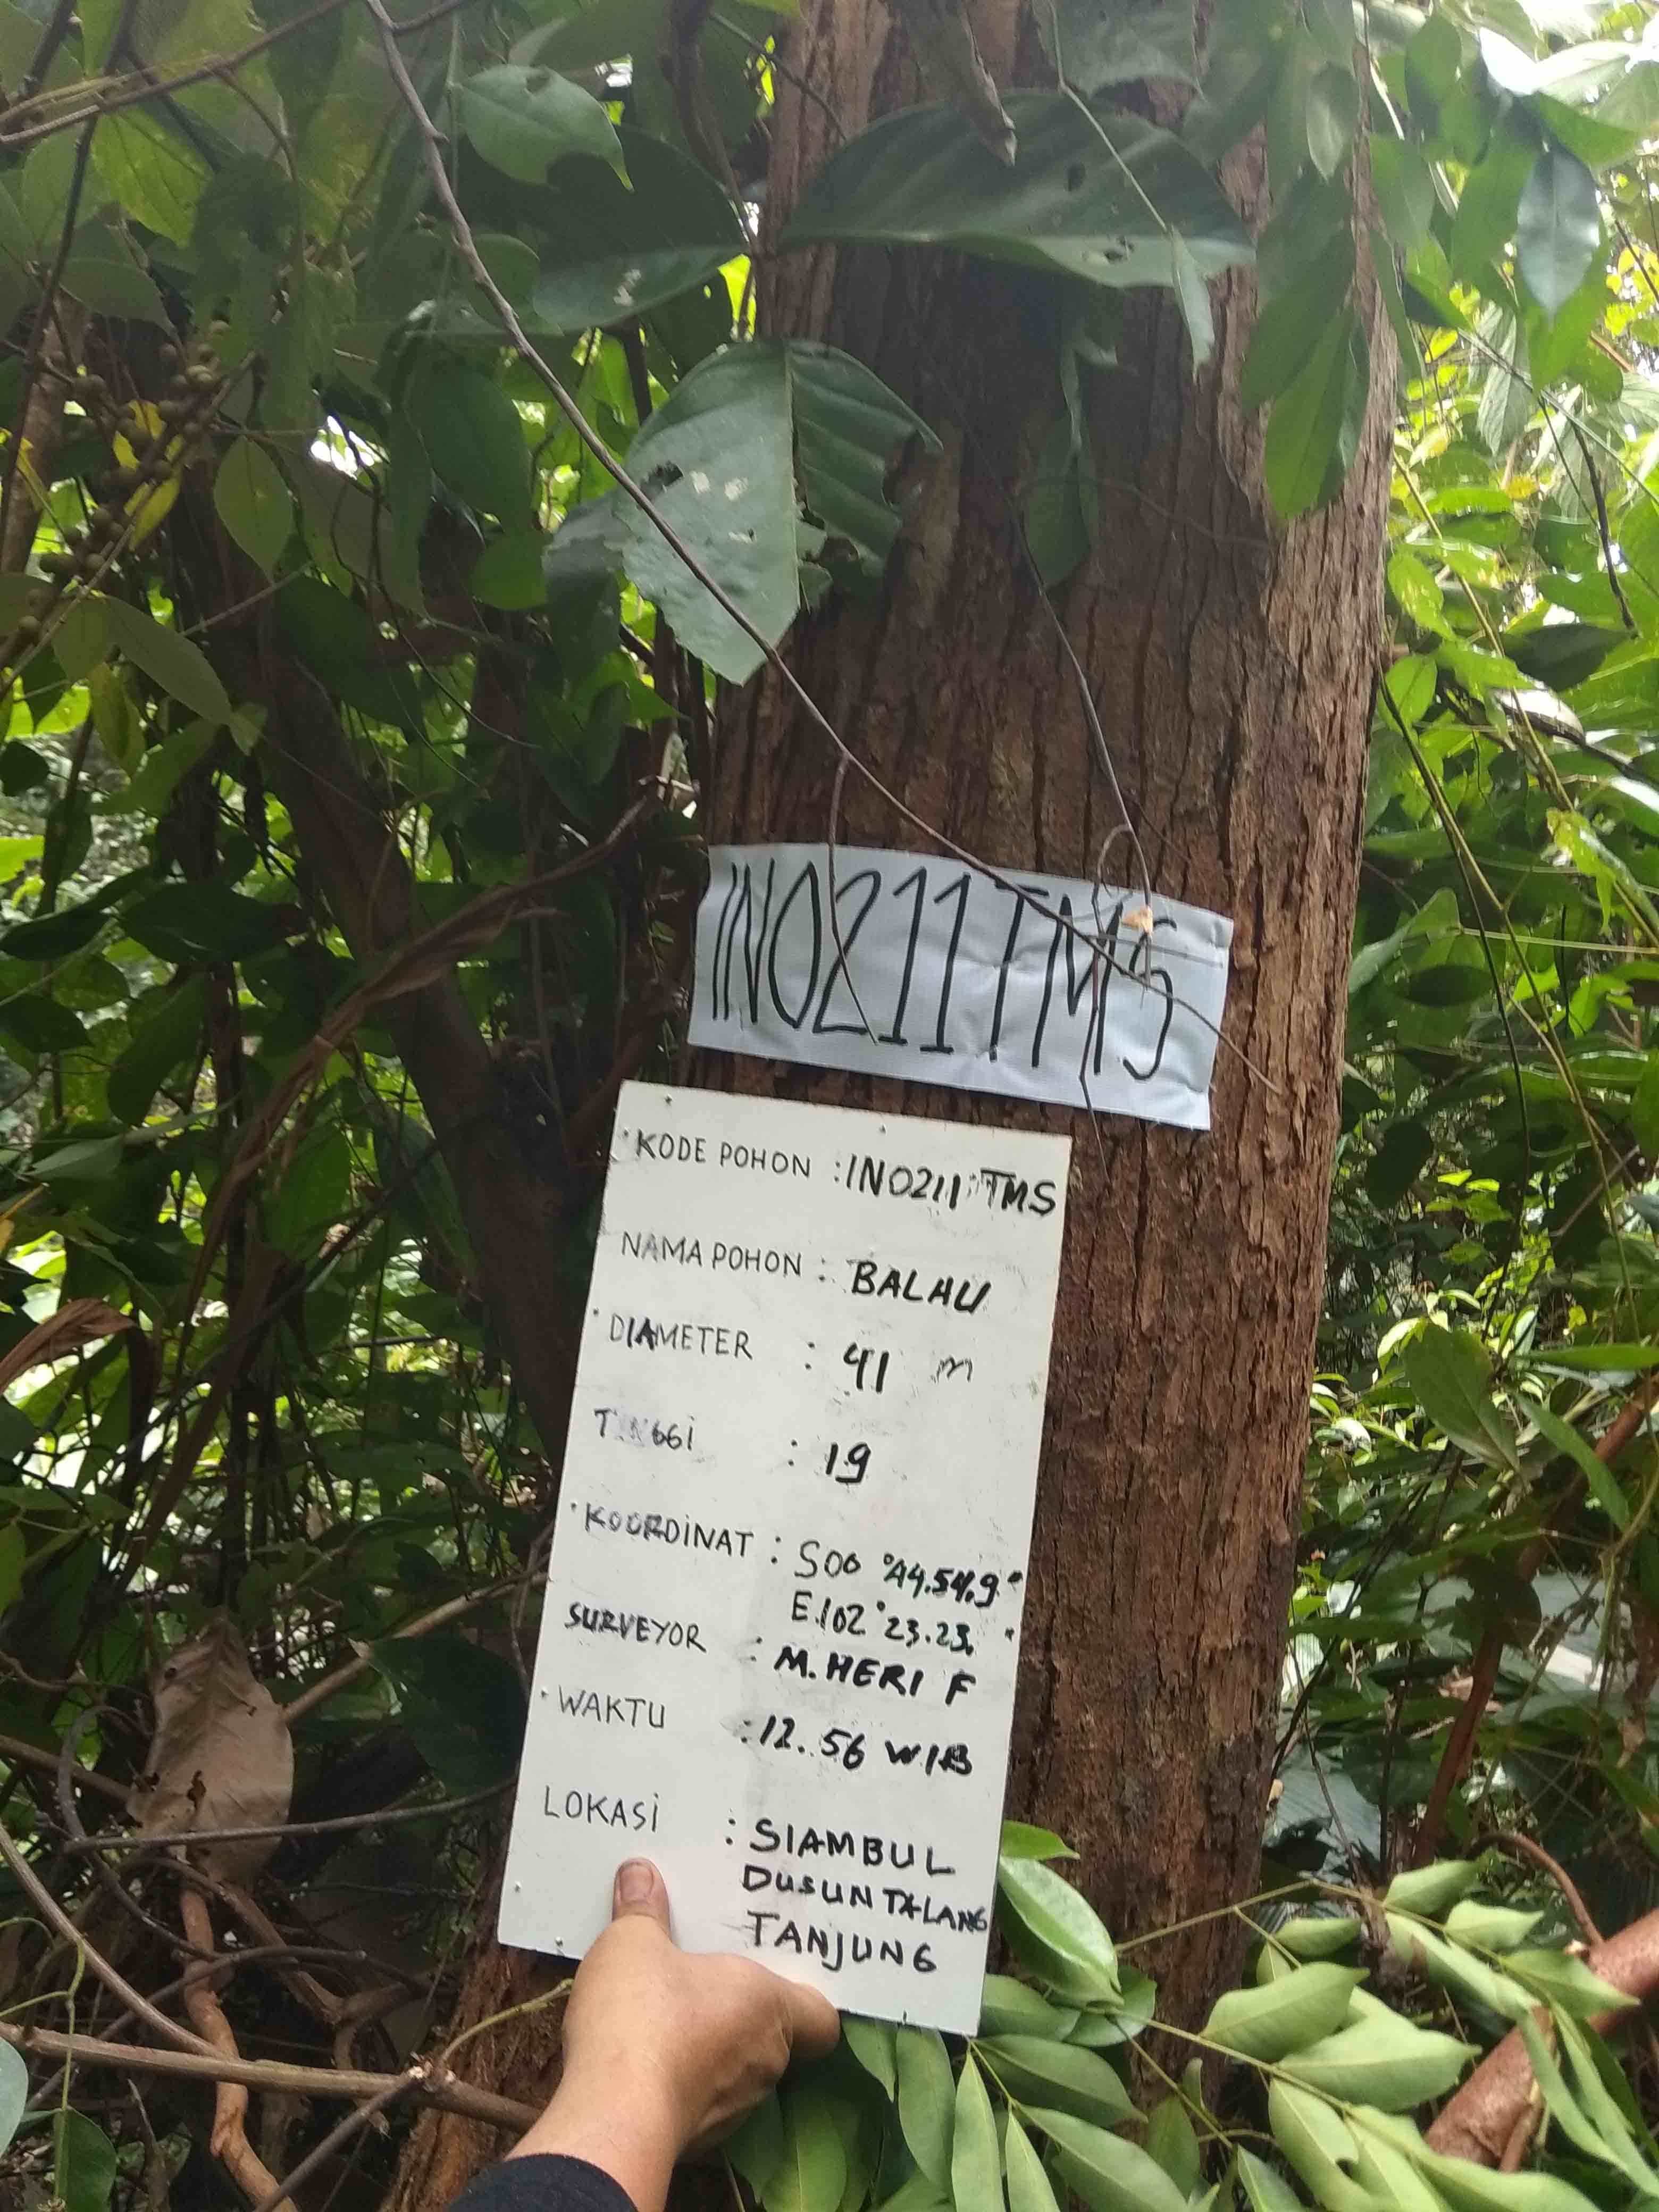 INO211TMS
KODE POHON : INO211 TMS
NAMA POHON : BALAU
DIAMETER : 41 m
TINGGI : 19
KOORDINAT : S00 °44.54.9"
E.102°23.23. "
SURVEYOR : M. HERI F
WAKTU : 12.56 WIB
LOKASI : SIAMBUL
DUSUN TALANG
TANJUNG